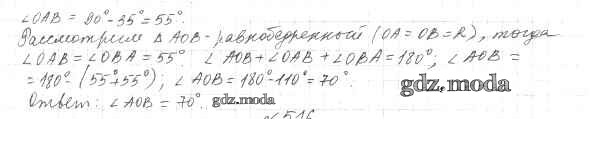 ∠OAB = 90° - 35° = 55°.
Рассмотрим △ AOB - равнобедренный (OA = OB = R), тогда
∠OAB = ∠OBA = 55° ∠AOB + ∠OAB + ∠OBA = 180°; ∠AOB =
= 180° - (55° + 55°); ∠AOB = 180° - 110° = 70°.
gdz.moda
Ответ: ∠AOB = 70°. gdz.moda